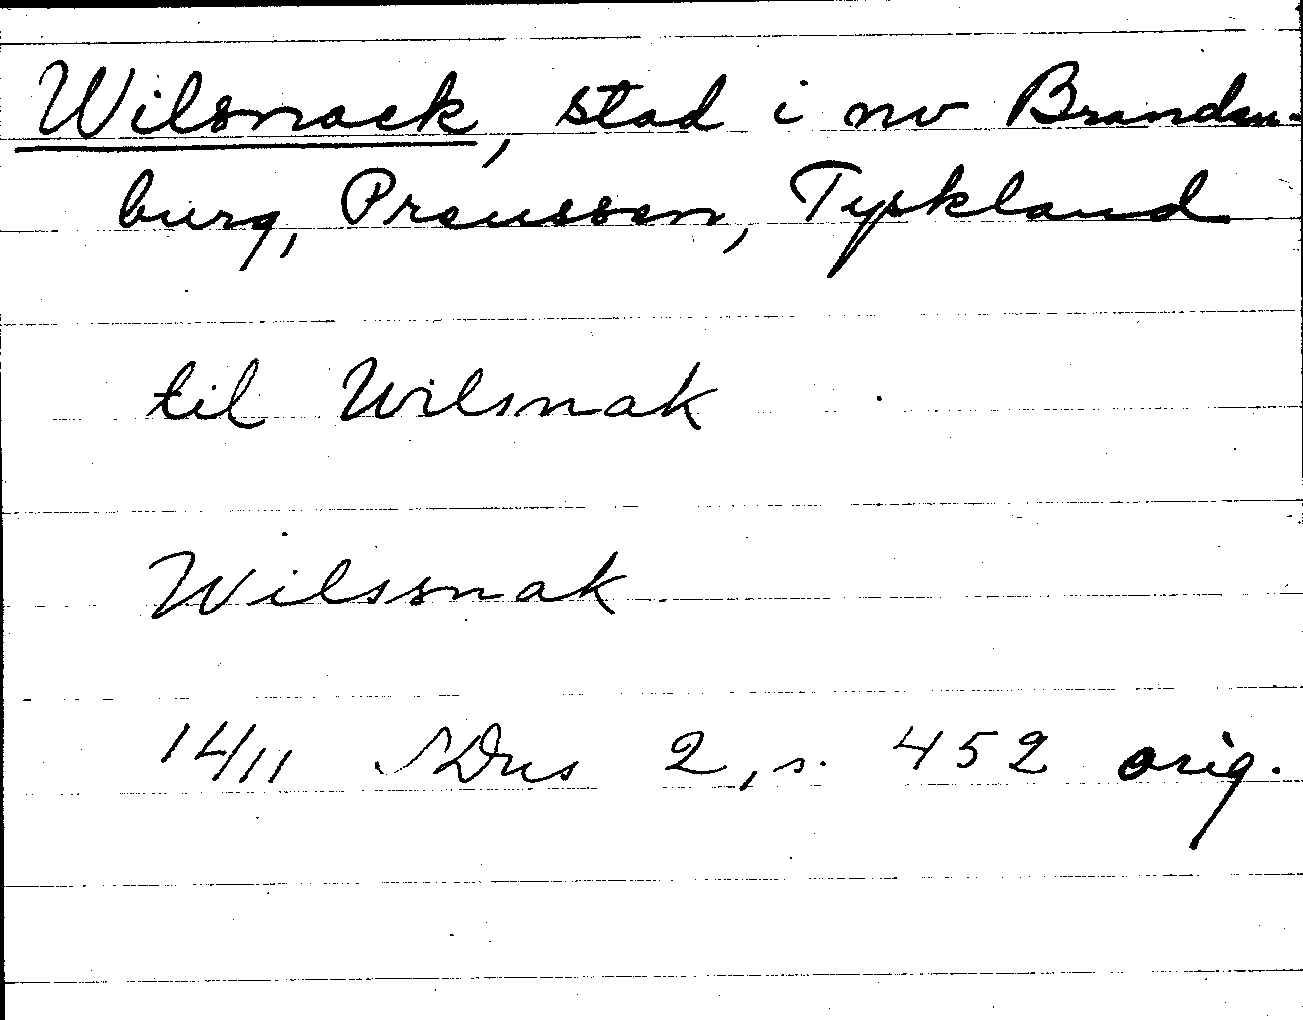 Wilsnack, stad i nv Branden-
burg, Preussen, Tyskland
til Wilsnak
Wilssnak
14/11 SDns 2, s. 452 orig.